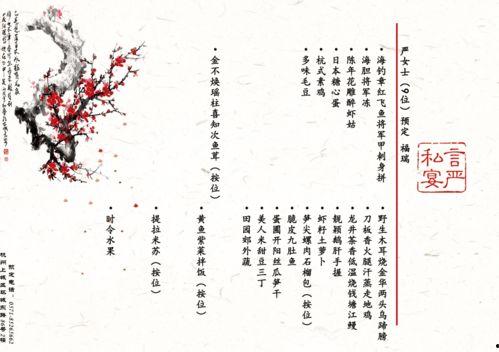 严女士（9位）预定 福瑞
• 海钓章红飞鱼将军甲刺身拼
• 海胆将军冻
• 陈年花雕醉虾姑
• 日本糖心蛋
• 杭式素鸡
• 多味毛豆
• 金不焕瑶柱喜知次鱼茸（按位）
• 野生木耳烧金华两头乌蹄膀
• 刀板香火腿汗蒸走地鸡
• 龙井茶香低温烧钱塘江鳗
• 靓颖鹅肝手握
• 虾籽土萝卜
• 笋尖螺肉石榴包（按位）
• 脆皮九肚鱼
• 蛋圃开阳丝瓜笋干
• 美人米甜豆三丁
• 田园郊外蔬
• 黄鱼紫菜拌饭（按位）
• 提拉米苏（按位）
• 时令水果
言严
私宴
预定电话：0571-85265662
杭州上城区环城东路60号2楼